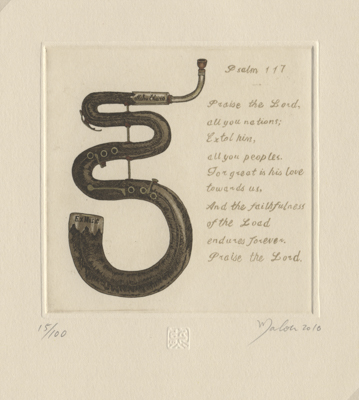 Psalm 117
Praise the Lord,
all you nations;
Extol him,
all you peoples.
For great is his love
towards us.
And the faithfulness
of the Load
endures forever.
Praise the Lord.
15/100
2010